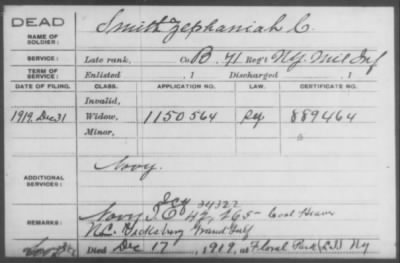 DEAD
NAME OF SOLDIER: Smith, Zephaniah C.
SERVICE: Late rank, Co. B. 71 Reg't N.Y. Mil Inf
TERM OF SERVICE: Enlisted , 1 Discharged , 1
DATE OF FILING. CLASS. APPLICATION NO. LAW. CERTIFICATE NO.
Invalid,
1919, Dec 31 Widow, 1150564 889464
Minor,
ADDITIONAL SERVICES: Navy.
34322
REMARKS: Navy 42,265 - Coal Heaver
Vicksburg Grand Gulf
Died Dec 17, 1919, at Floral Park L.I. Ny